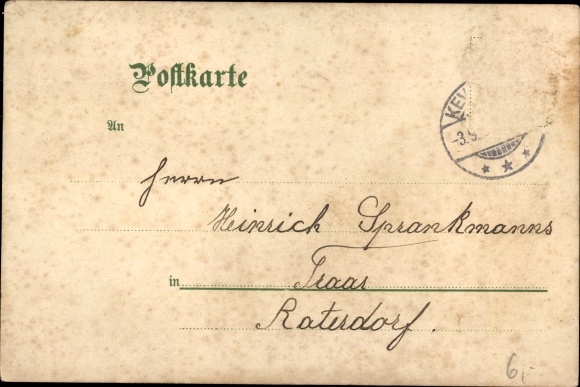 Postkarte
KEV
-3.5.
An
Herrn
Heinrich Sprankmanns
in Traar
Raterdorf.
6,-